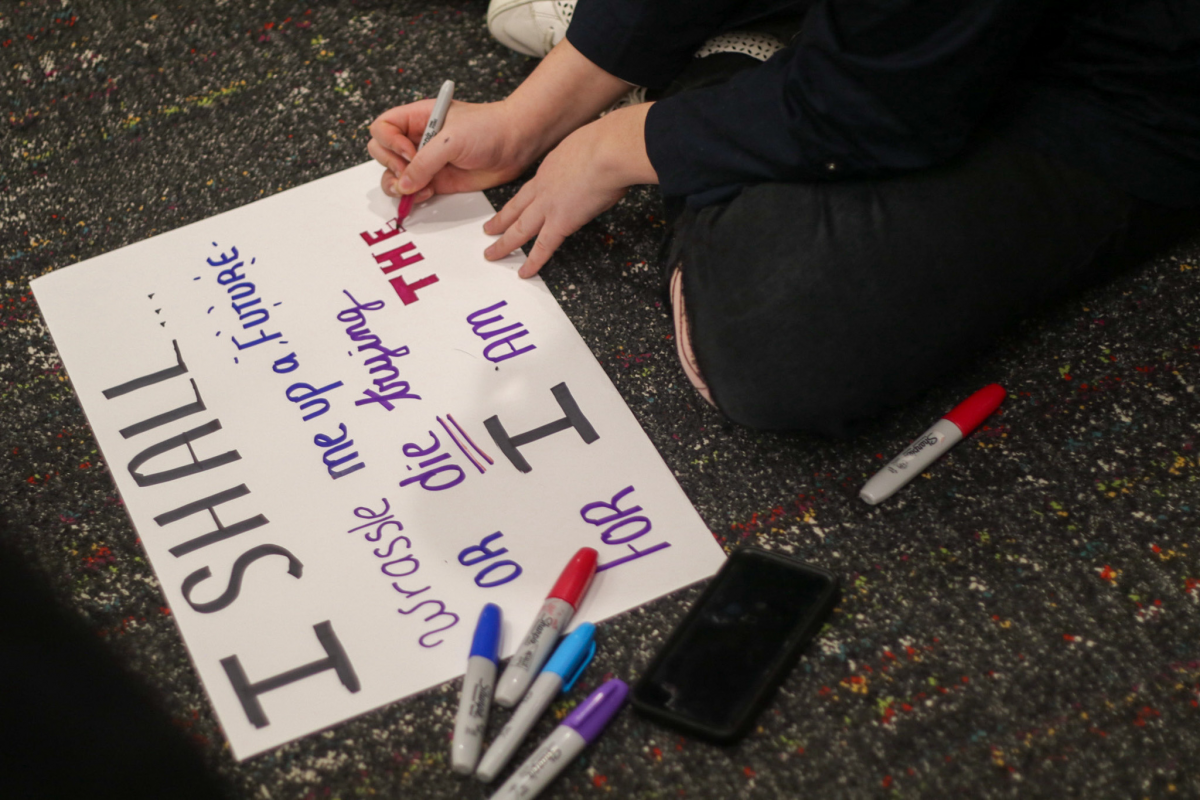 I SHALL...
Wrassle me up a FUTURE.
OR die trying
FOR I AM THE
Sharpie